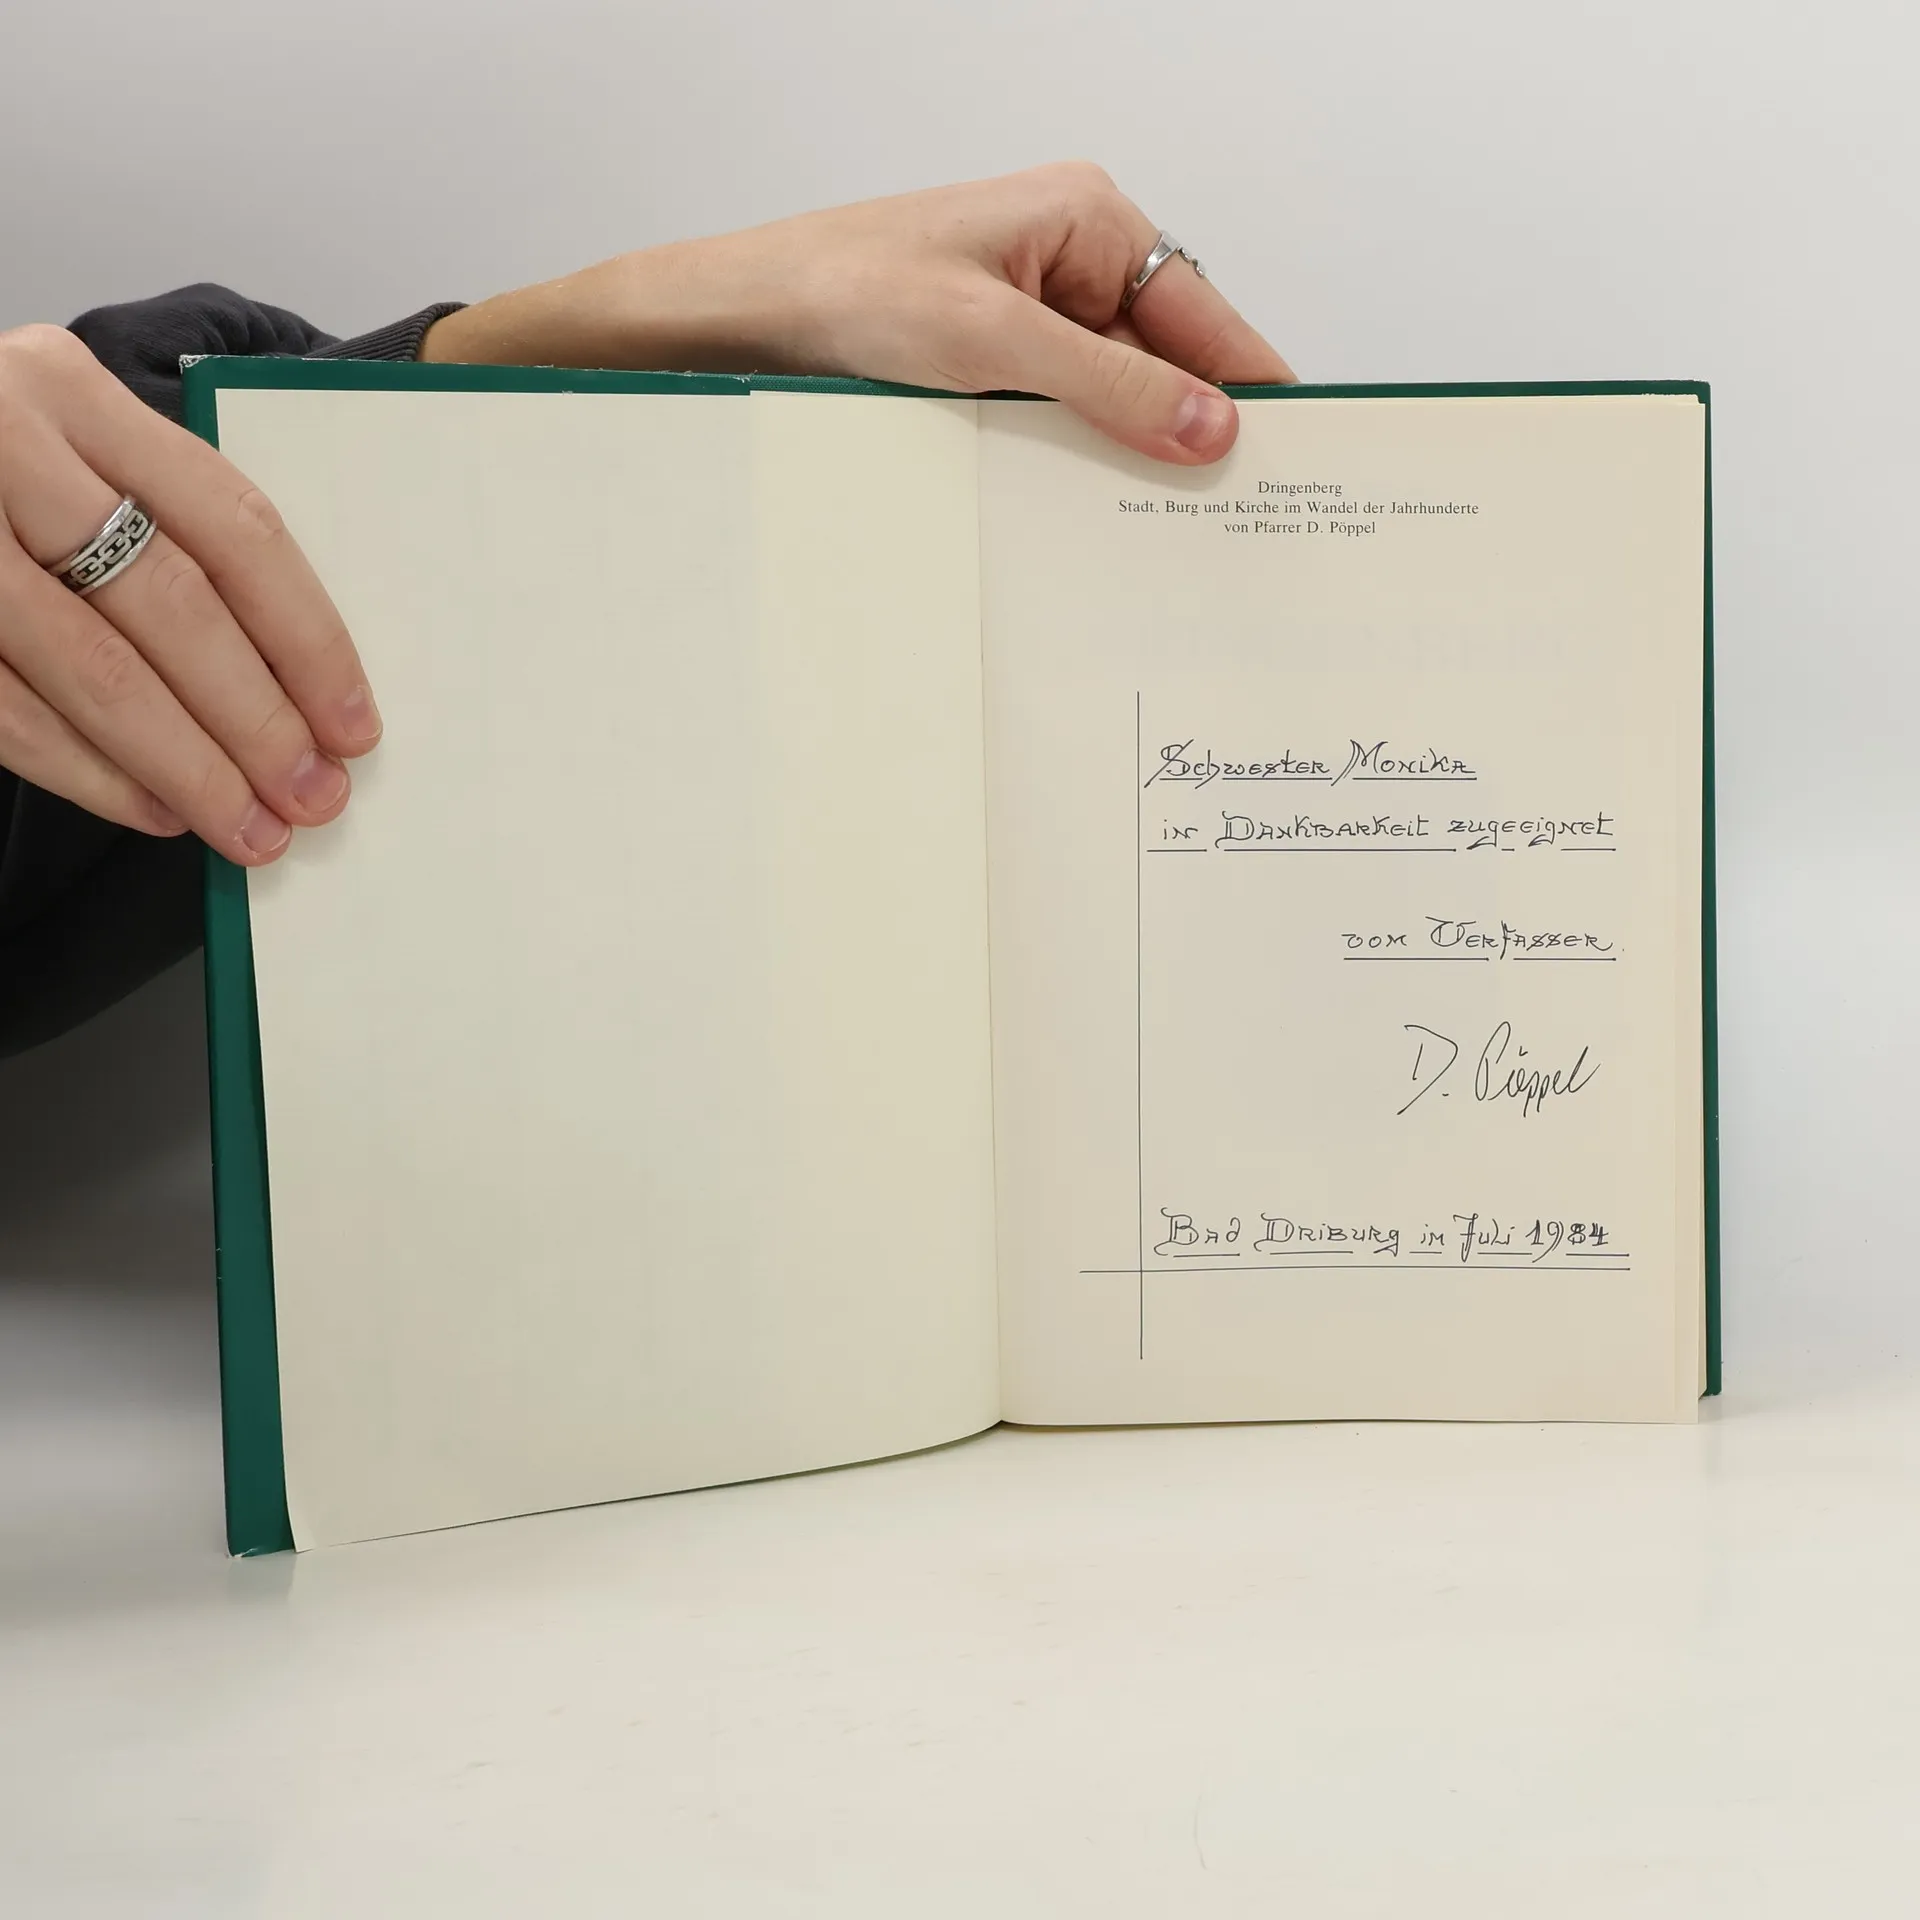 Dringenberg
Stadt, Burg und Kirche im Wandel der Jahrhunderte
von Pfarrer D. Pöppel
Schwester Monika
in Dankbarkeit zugeeignet
vom Verfasser.
D. Pöppel
Bad Driburg im Juli 1984